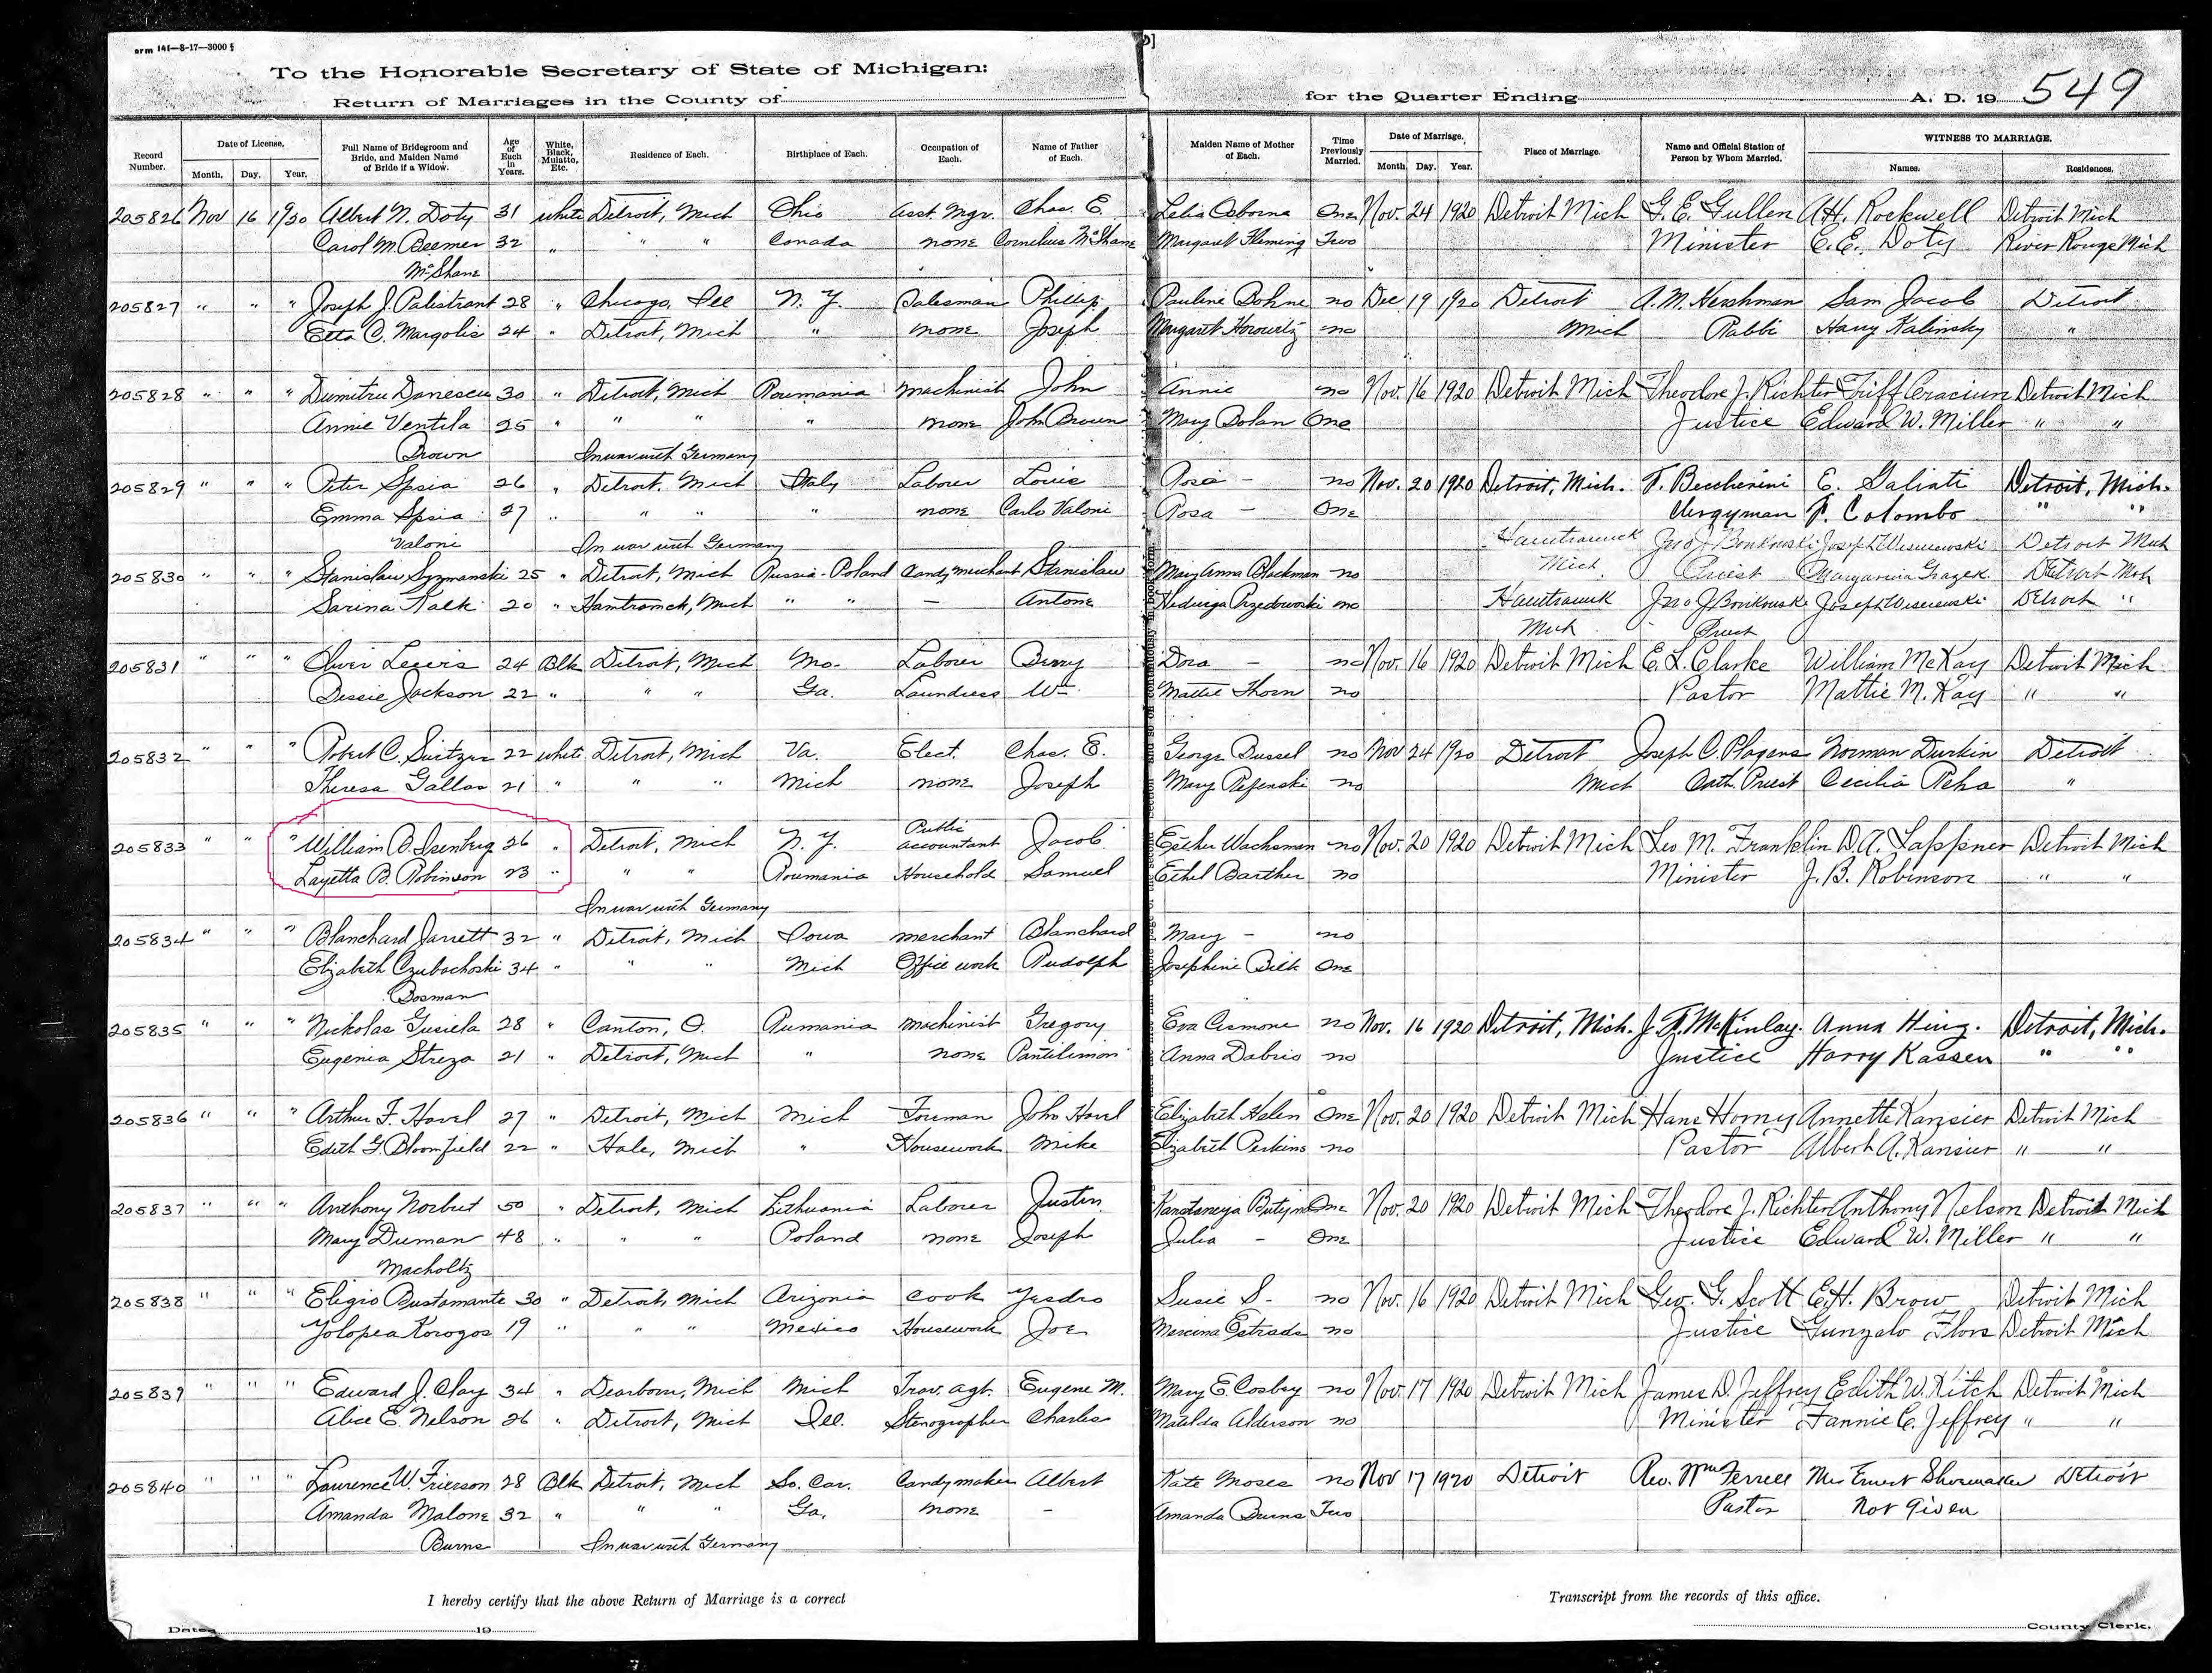 orm 141—8-17—3000 §
To the Honorable Secretary of State of Michigan:
Return of Marriages in the County of
for the Quarter Ending A. D. 19 549
Record Number. Date of License. Month. Day. Year. Full Name of Bridegroom and Bride, and Maiden Name of Bride if a Widow. Age of Each in Years. White, Black, Mulatto, Etc. Residence of Each. Birthplace of Each. Occupation of Each. Name of Father of Each. Maiden Name of Mother of Each. Time Previously Married. Date of Marriage. Month. Day. Year. Place of Marriage. Name and Official Station of Person by Whom Married. WITNESS TO MARRIAGE. Names. Residences.
205826 Nov 16 1920 Albert N. Doty 31 white Detroit, Mich Ohio Asst. Mgr. Chas. E. Lelia Osborne One Nov. 24 1920 Detroit Mich G. E. Gullen A.H. Rockwell Detroit Mich
Carol M. Beemer 32 " " " Canada none Cornelius McShane Margaret Fleming Two Minister C.E. Doty River Rouge Mich
McShane
205827 " " " Joseph J. Palestrant 28 " Chicago, Ill N. Y. Salesman Phillip Pauline Bohne no Dec 19 1920 Detroit A. M. Hershman Sam Jacob Detroit
Etta C. Margolis 24 " Detroit, Mich " none Joseph Margaret Horowitz no Mich Rabbi Harry Kalinsky "
205828 " " " Dumitru Danescu 30 " Detroit, Mich Roumania Machinist John Annie no Nov. 16 1920 Detroit Mich Theodore J. Richter Triff Craciun Detroit Mich
Annie Ventila 25 " " " " none John Brown Mary Dolan One Justice Edward W. Miller " "
Brown In war with Germany
205829 " " " Peter Spsia 26 " Detroit, Mich Italy Laborer Louis Rosa - no Nov. 20 1920 Detroit, Mich. F. Beccherini E. Galinti Detroit, Mich.
Emma Spsia 27 " " " " none Carlo Valoni Rosa - One Clergyman F. Colombo " "
Valoni In war with Germany Hamtramck Jno J Bonkowski Joseph Wisniewski Detroit Mich
205830 " " " Stanislaw Szymanski 25 " Detroit, Mich Russia-Poland Candy merchant Stanislaw Mary Anna Blackman no Mich. Priest Detroit Mich
Sarina Kalk 20 " Hamtramck, Mich " " - Antone Hedwiga Przedworski no Hamtramck Jno J Bonkowski Joseph Wisniewski Detroit "
Mich Priest
205831 " " " Oliver Lewis 24 Blk Detroit, Mich Mo. Laborer Berry Dora - no Nov. 16 1920 Detroit Mich E. L. Clarke William McKay Detroit Mich
Dessie Jackson 22 " " " Ga. Laundress Wm Mattie Thorn no Pastor Mattie M. Kay " "
205832 " " " Robert C. Switzer 22 white Detroit, Mich Va. Elect. Chas. E. George Bussel no Nov 24 1920 Detroit Joseph C. Plagens Norman Durkin Detroit
Theresa Gallas 21 " " " Mich none Joseph Mary Refenski no Mich Cath. Priest Cecilia Reha "
205833 " " " William B. Isenberg 26 " Detroit, Mich N. Y. Public accountant Jacob Esther Wachsman no Nov. 20 1920 Detroit Mich Leo M. Franklin D.A. Lappner Detroit Mich
Layetta B. Robinson 23 " " " Roumania Household Samuel Ethel Barther no Minister J. B. Robinson " "
In war with Germany
205834 " " " Blanchard Jarrett 32 " Detroit, Mich Iowa merchant Blanchard Mary - no
Elizabeth Czubachoski 34 " " " Mich Office work Rudolph Josephine Bilk One
Bosman
205835 " " " Nickolas Gusiela 28 " Canton, O. Rumania machinist Gregory Eva Cismone no Nov. 16 1920 Detroit, Mich. J. F. McKinlay. Anna King. Detroit, Mich.
Eugenia Streza 21 " Detroit, Mich " none Pantilimon Anna Dabrio no Justice Harry Kassen " "
205836 " " " Arthur F. Havel 27 " Detroit, Mich Mich Foreman John Havel Elizabeth Halen One Nov. 20 1920 Detroit Mich Hans Horny Annette Kansier Detroit Mich
Edith G. Bloomfield 22 " Hale, Mich " Housework Mike Elizabeth Perkins no Pastor Albert A. Kansier " "
205837 " " " Anthony Norbut 50 " Detroit, Mich Lithuania Laborer Justin Butym One Nov. 20 1920 Detroit Mich Theodore J. Richter Anthony Nelson Detroit Mich
Mary Duman 48 " " " Poland none Joseph Julia - One Justice Edward W. Miller " "
Macholtz
205838 " " " Eligio Bustamante 30 " Detroit, Mich Arizonia Cook Ysedro Susie S- no Nov. 16 1920 Detroit Mich Geo. G. Scott E.H. Brow Detroit Mich
Yolopea Korogos 19 " " " Mexico Housework Joe Mercina Estrada no Justice Gunzalo Flors Detroit Mich
205839 " " " Edward J. Clay 34 " Dearborn, Mich Mich Trav. Agt. Eugene M. Mary E. Cosbey no Nov. 17 1920 Detroit Mich James D. Jeffrey Edith W. Kitch Detroit Mich
Alice E. Nelson 26 " Detroit, Mich Ill. Stenographer Charles Matilda Alderson no Minister Fannie C. Jeffrey " "
205840 " " " Lawrence W. Frierson 28 Blk Detroit, Mich So. Car. Candymaker Albert Kate Moses no Nov 17 1920 Detroit Rev. Wm Ferrell Mrs Ernest Shoemaker Detroit
Amanda Malone 32 " " " Ga. none - Amanda Burns Two Pastor Not Given
Burns In war with Germany
I hereby certify that the above Return of Marriage is a correct
Transcript from the records of this office.
Dated 19
County Clerk.